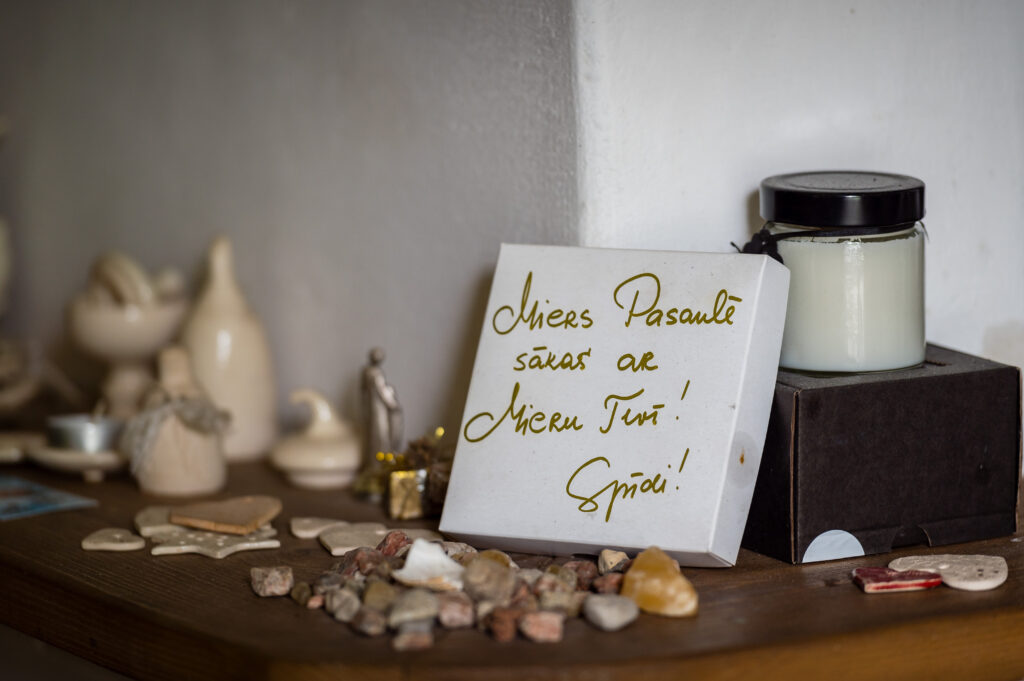 Miers Pasaulē
sākas ar
Mieru Tevī!
Spīdi!